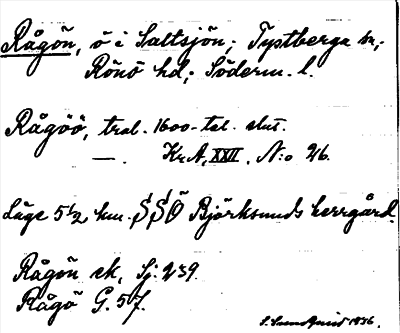 Rågön, ö i Saltsjön; Tystberga sn;
Rönö hd; Söderm. l.
Rågöö, tral. 1600-tal. slut.
— . Kr.A, XXII, N:o 26.
Läge 5 1/2 km. SSÖ Björksunds herrgård.
Rågön ek, Sj. 239.
Rågö G. 57.
1936.